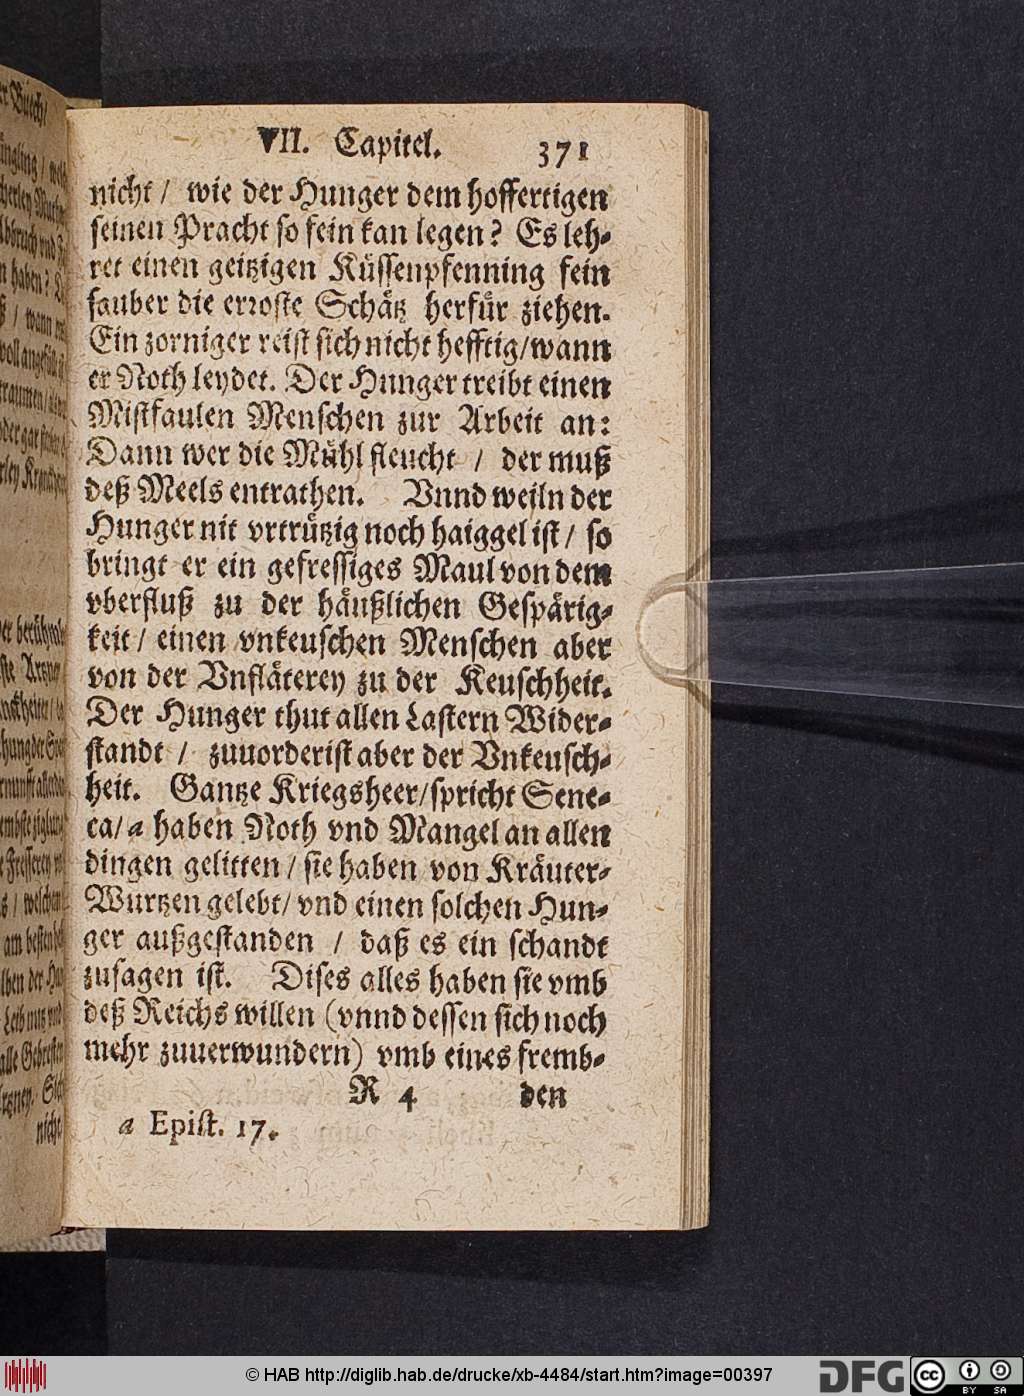 VII. Capitel. 371
nicht / wie der Hunger dem hoffertigen
seinen Pracht so fein kan legen? Es leh-
ret einen geitzigen Küssenpfenning fein
sauber die erroste Schätz herfür ziehen.
Ein zorniger reist sich nicht hefftig/wann
er Noth leydet. Der Hunger treibt einen
Mistfaulen Menschen zur Arbeit an:
Dann wer die Mühl fleucht / der muß
deß Meels entrathen. Vnnd weiln der
Hunger nit vrtrützig noch haiggel ist / so
bringt er ein gefressiges Maul von dem
vberfluß zu der häußlichen Gespärig-
keit / einen vnkeuschen Menschen aber
von der Vnfläterey zu der Keuschheit.
Der Hunger thut allen Lastern Wider-
standt / zuuorderist aber der Vnkeusch-
heit. Gantze Kriegsheer/spricht Sene-
ca/ a haben Noth vnd Mangel an allen
dingen gelitten / sie haben von Kräuter-
Wurtzen gelebt/ vnd einen solchen Hun-
ger außgestanden / daß es ein schandt
zusagen ist. Dises alles haben sie vmb
deß Reichs willen (vnnd dessen sich noch
mehr zuuerwundern) vmb eines fremb-
R 4 den
a Epist. 17.
© HAB http://diglib.hab.de/drucke/xb-4484/start.htm?image=00397
DFG
cc BY SA